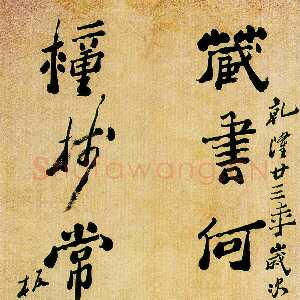 乾隆廿三年歲次
藏書何
穜樹常
板
Shufawang.CN